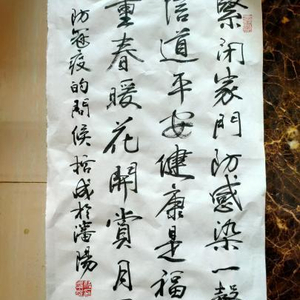 緊闭家門防感染一聲
信道平安健康是福
重春暖花開賞月
防冠疫的問候成於瀋陽